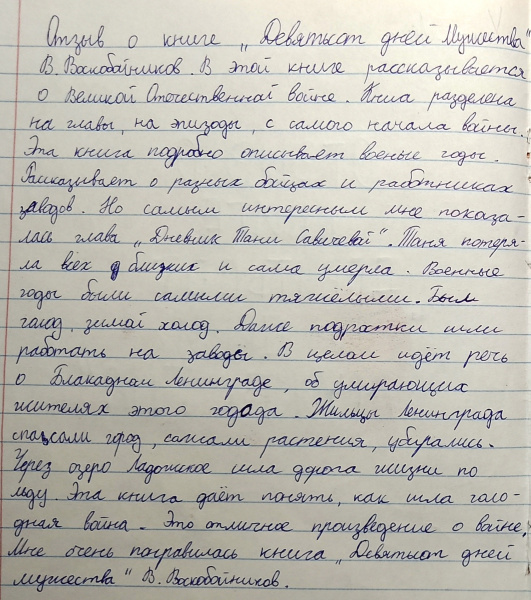 Отзыв о книге „Девятьсот дней Мужества"
В. Воскобойников. В этой книге рассказывается
о Великой Отечественной войне. Книга разделена
на главы, на эпизоды, с самого начала войны.
Эта книга подробно описывает военые годы.
Рассказывает о разных бойцах и работниках
заводов. Но самым интересным мне показа-
лась глава „Дневник Тани Савичевой". Таня потеря-
ла всех близких и сама умерла. Военные
годы были самыми тяжёлыми. Был
голод, зимой холод. Даже подростки шли
работать на заводы. В целом идёт речь
о Блакадном Ленинграде, об умирающих
жителях этого годода. Жильцы Ленинграда
спасали город, сажали растения, убирались.
Через озеро Ладожское шла дорога жизни по
льду. Эта книга даёт понять, как шла голо-
дная война. Это отличное произведение о войне.
Мне очень понравилась книга „Девятьсот дней
мужества" В. Воскобойников.